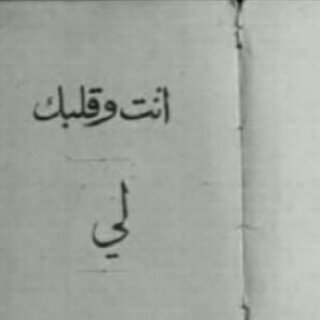 انت وقلبك
لي